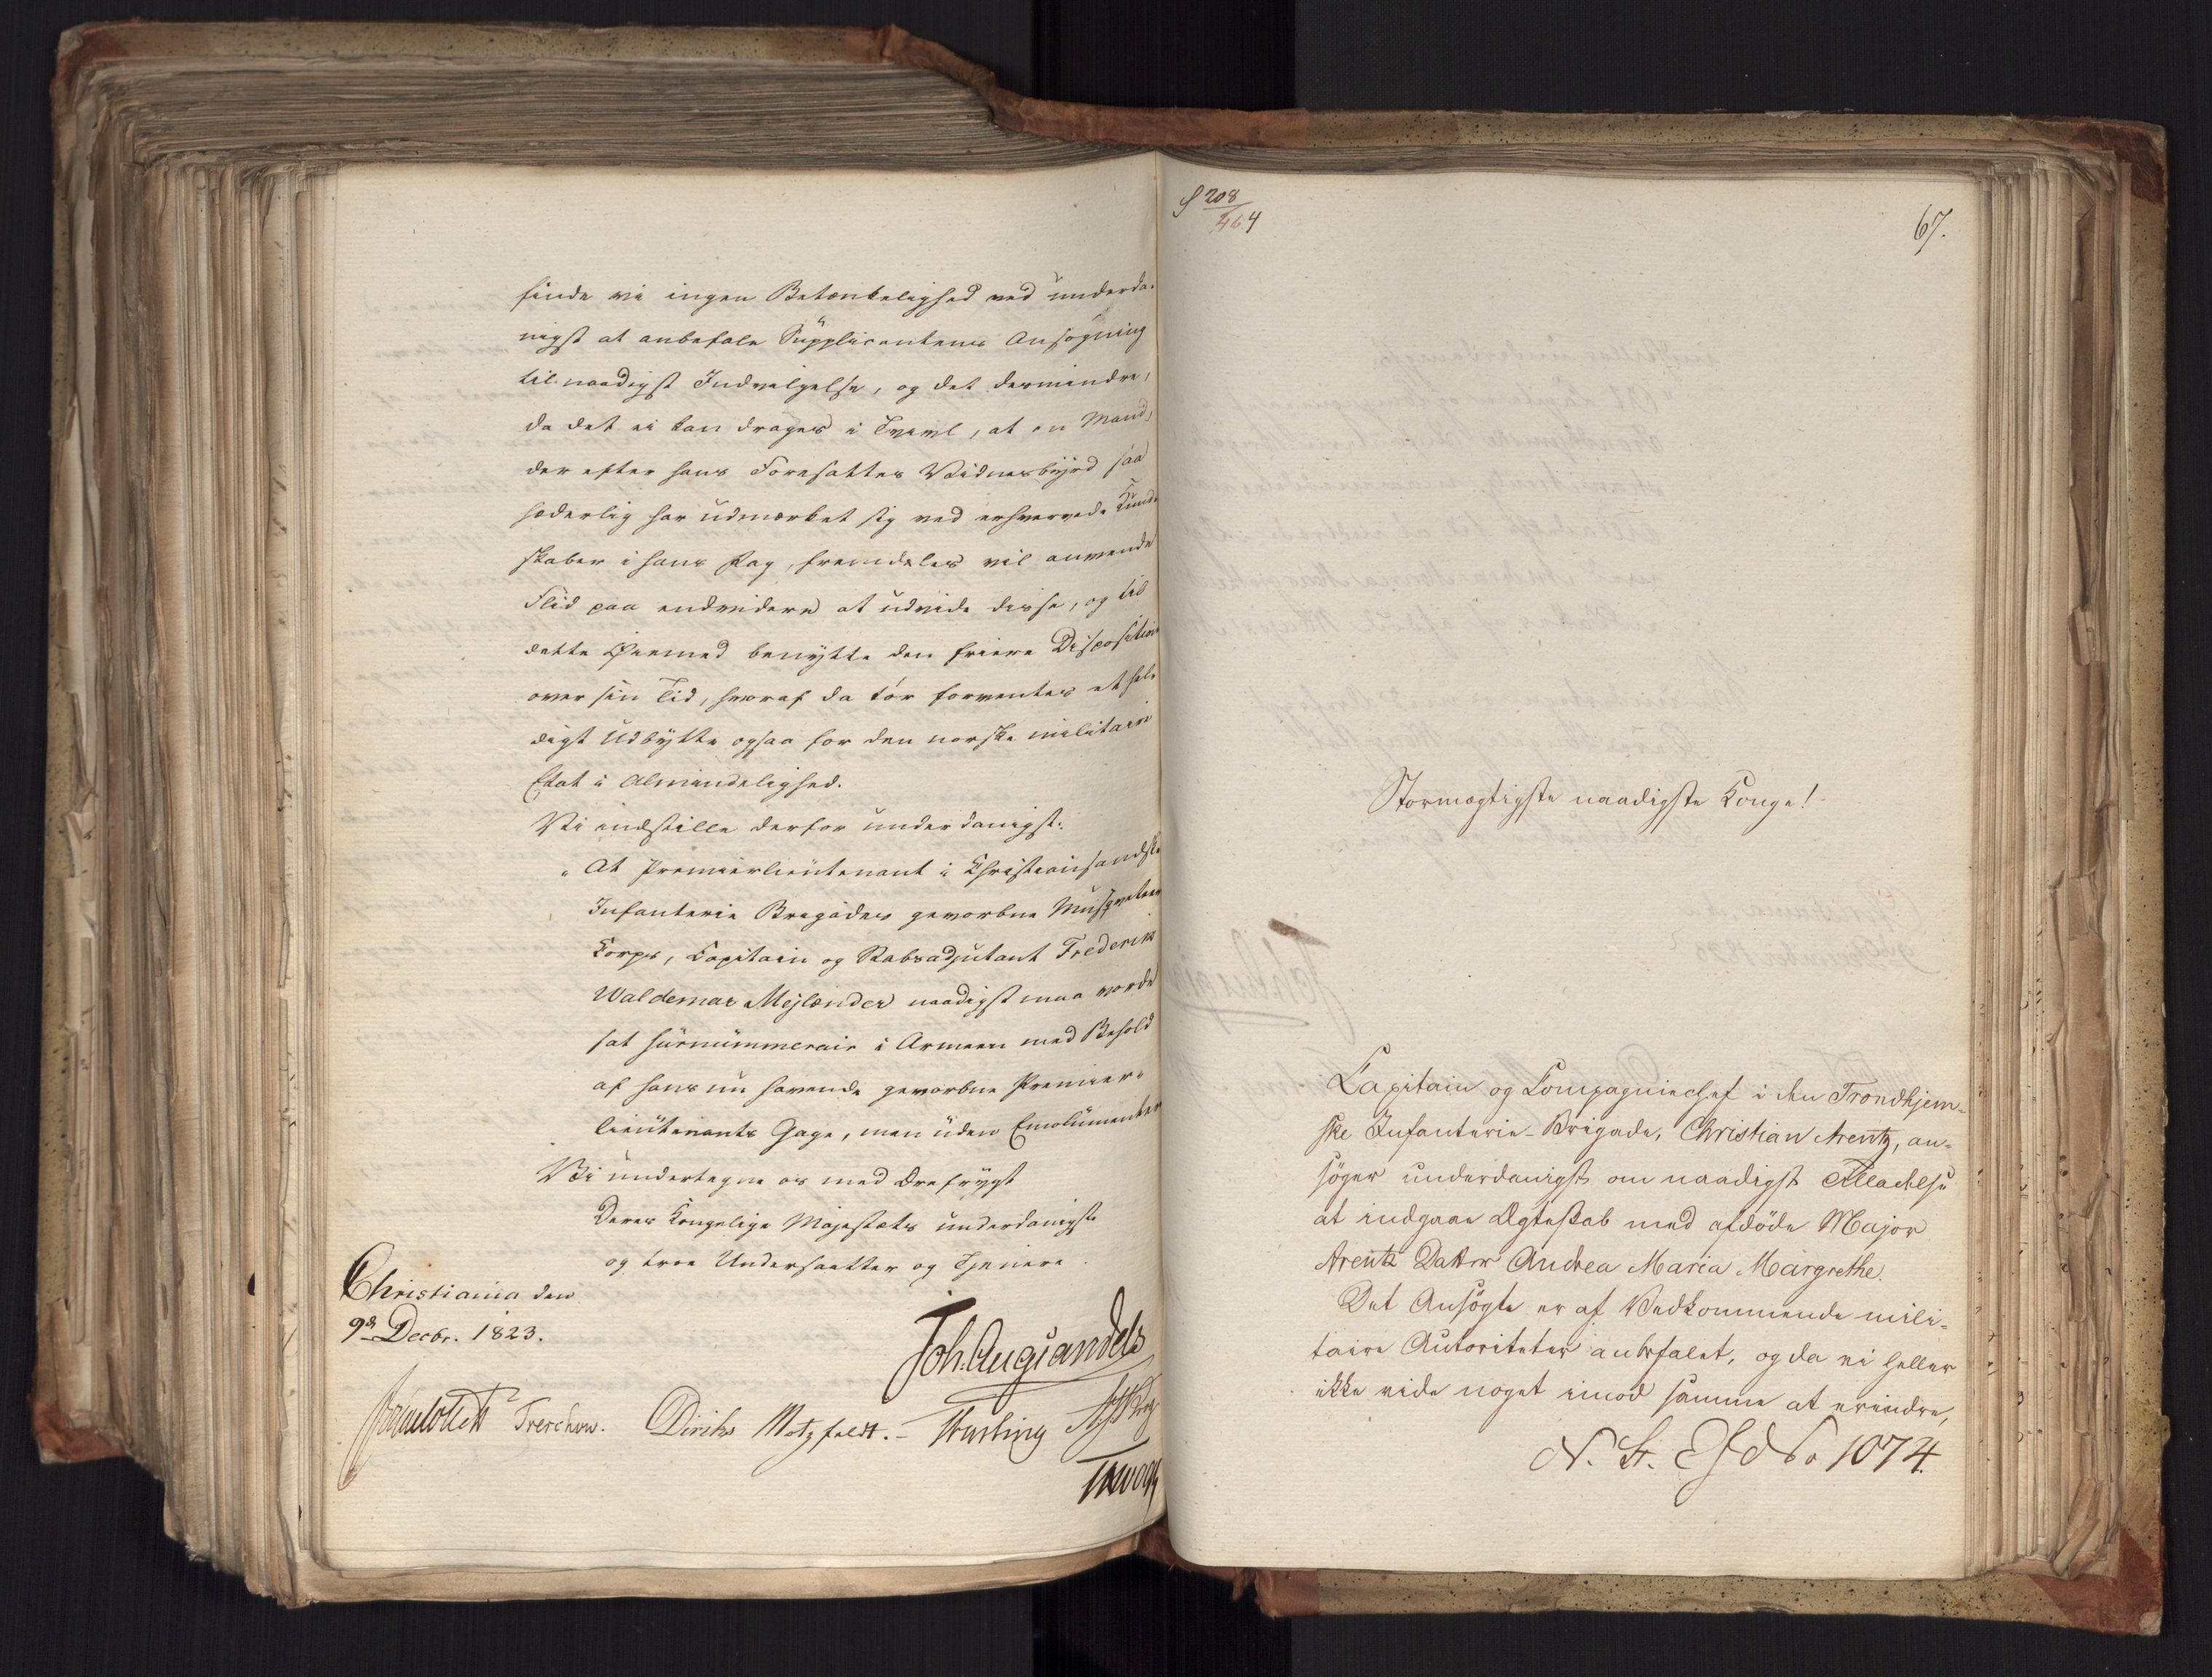 finde vi ingen Betænkelighed ved underda-
nigst at anbefale Supplicantens Ansøgning
til naadigst Indvilgelse, og det desmindre,
da det ei kan drages i Tvivl, at en Mand,
der efter hans Foresattes Vidnesbyrd saa
hæderlig har udmærket sig ved erhvervede Kund-
skaber i hans Fag, fremdeles vil anvende
Flid paa endvidere at udvide disse, og til
dette Øiemed benytte den friere Disposition
over sin Tid, hvoraf da tør forventes et hel-
digt Udbytte ogsaa for den norske militaire
Etat i Almindelighed.
Vi indstille derfor underdanigst:
"At Premierlieutenant i Christiansandske
Infanterie Brigades gevorbne Musqueteer
Corps, Capitain og Stabsadjutant Frederik
Waldemar Mejlænder naadigst maa vorde
sat surnummerair i Armeen med Behold
af hans nu havende gevorbne Premier-
lieutenants Gage, men uden Emolumenter
Vi undertegne os med Ærefrygt
Deres Kongelige Majestæts underdanigste
og troe Undersaatter og Tjenere
Christiania den
9de Decbr. 1823.
Joh. Aug Sandels
Treschow. Diriks Motzfeldt.
S 208
464
67.
Stormægtigste naadigste Konge!
Capitain og Compagniechef i den Trondhjem-
ske Infanterie-Brigade, Christian Arentz, an-
søger underdanigst om naadigst Tilladelse
at indgaae Ægteskab med afdøde Major
Arentz Datter Andrea Maria Margrethe.
Det Ansøgte er af Vedkommende mili-
taire Autoriteter anbefalet, og da vi heller
ikke vide noget imod samme at erindre,
No 1074.